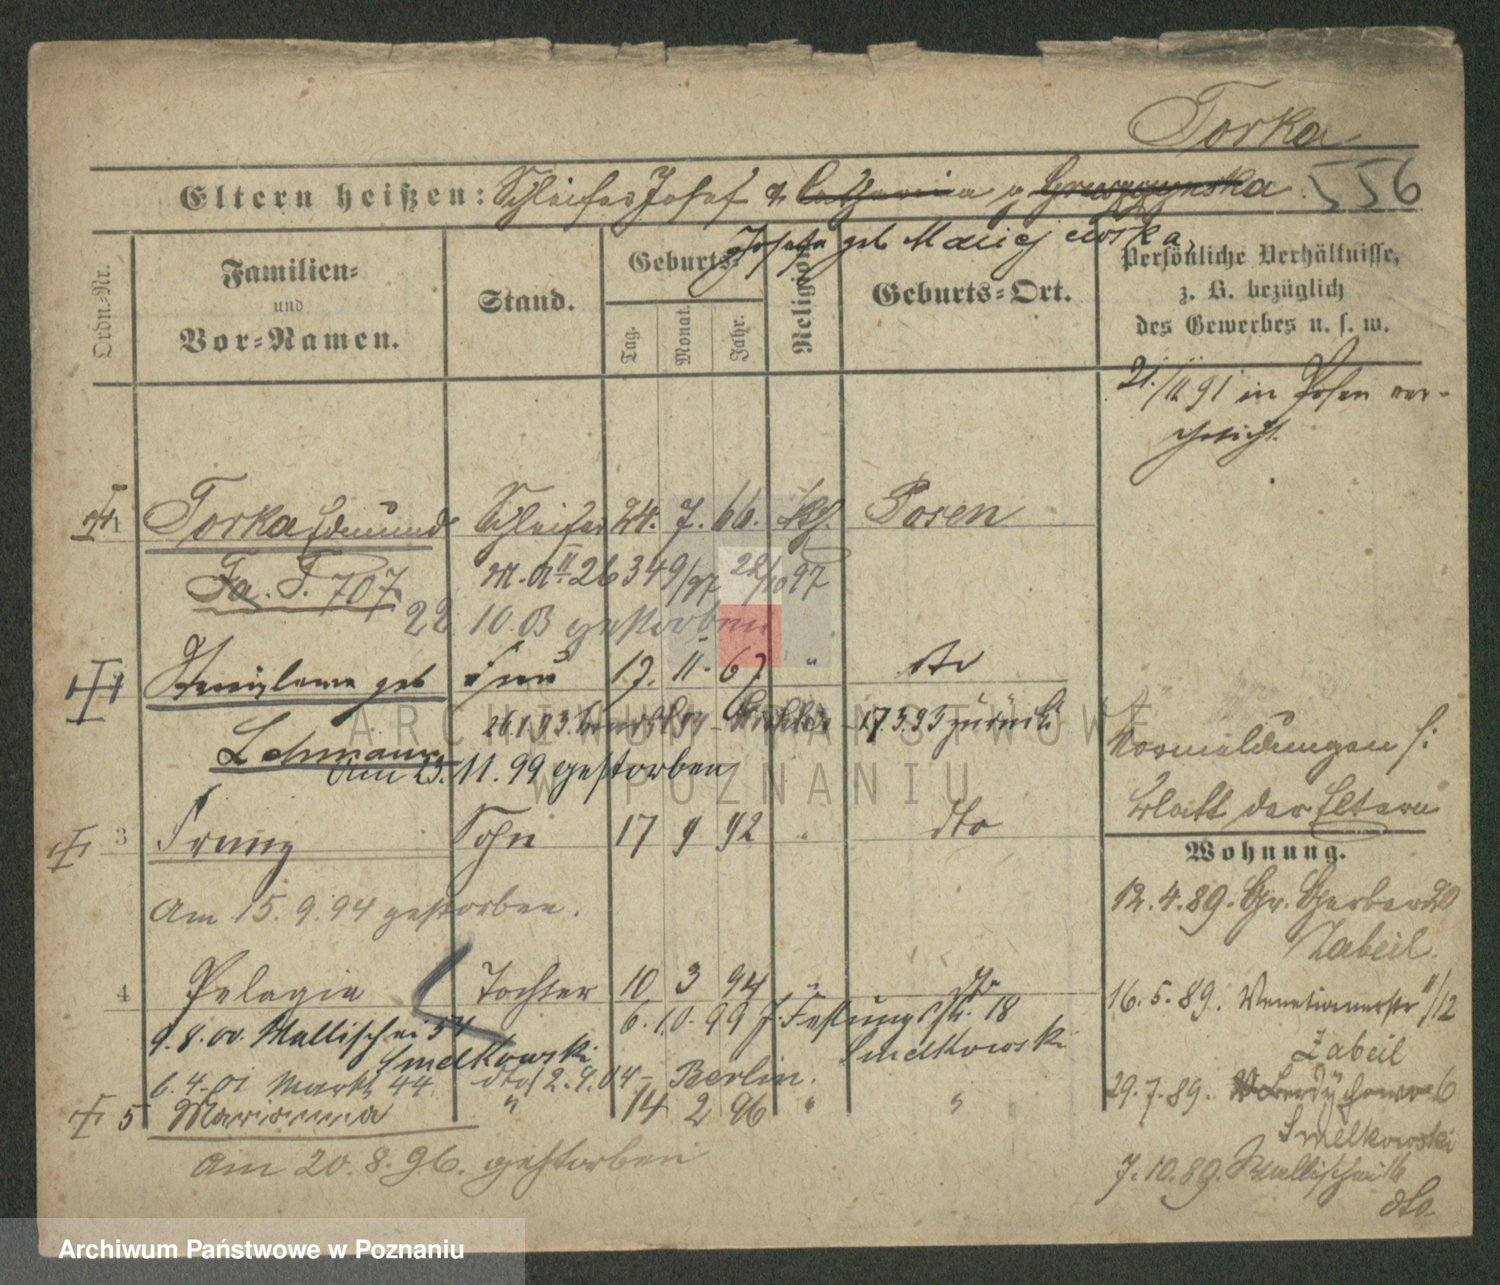 Torka
556
Eltern heißen: Schleifer Josef u. Catharina g. Gruszczynska
Josefa geb Maciejewska
Ordn.-Nr.
Familien- und Vor-Namen.
Stand.
Geburts-
Tag.
Monat.
Jahr.
Religion.
Geburts-Ort.
Persönliche Verhältnisse, z. B. bezüglich des Gewerbes u. s. w.
21./11 91 in Posen ver-
1 Torka Edmund Schleifer 24. 7. 66. kth. Posen
Fa. T. 707.
26349/97 22/10 97
22 10. 03 gestorben
geb Frau 17. 11. 67 " dto
Lehmann
17 3.93 zurück
Am 23. 11. 99 gestorben
3 Franz Sohn 17 9 92 " dto
Am 15. 9. 94 gestorben.
4 Pelagia Tochter 10 3 94 " dto
6. 10. 99 Festungsstr. 18
Smelkowski
9. 8. 00. Wallischei 54
Smelkowski
6. 4. 01 Markt 44 dto/ 2. 9. 04 - Berlin.
5 Marianna " 14 2 96 " "
Am 20. 8. 96. gestorben
Vormeldungen s:
Blatt der Eltern
Wohnung.
12. 4. 89. Gr. Gerberstr
Zabeil.
16. 5. 89. Venetianerstr 11/12
Zabeil
29. 7. 89. Berdychowo 6
Smelkowski
7. 10. 89. Wallischei 16
dto.
ARCHIWUM PAŃSTWOWE
W POZNANIU
Archiwum Państwowe w Poznaniu